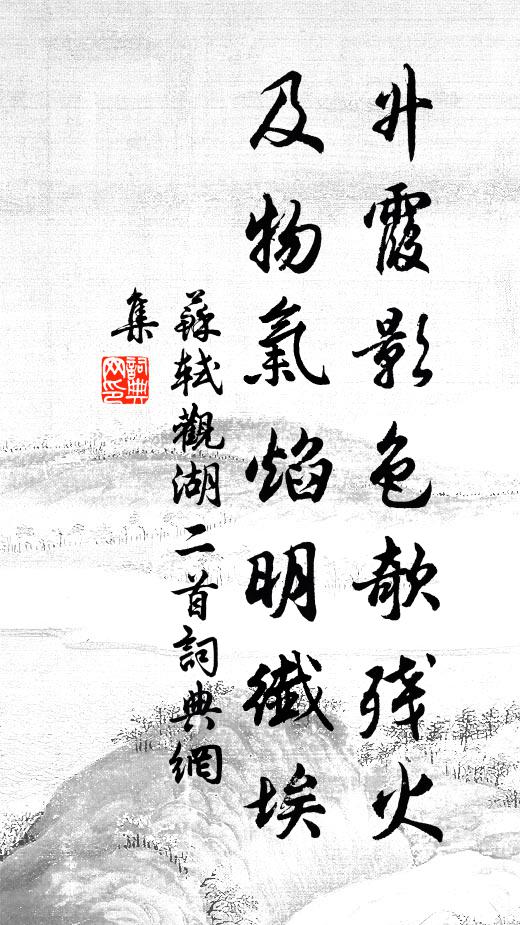 升霞影色欹殘火
及物氣焰明纖埃
蘇軾觀湖二首詞典網
集
詞典網印